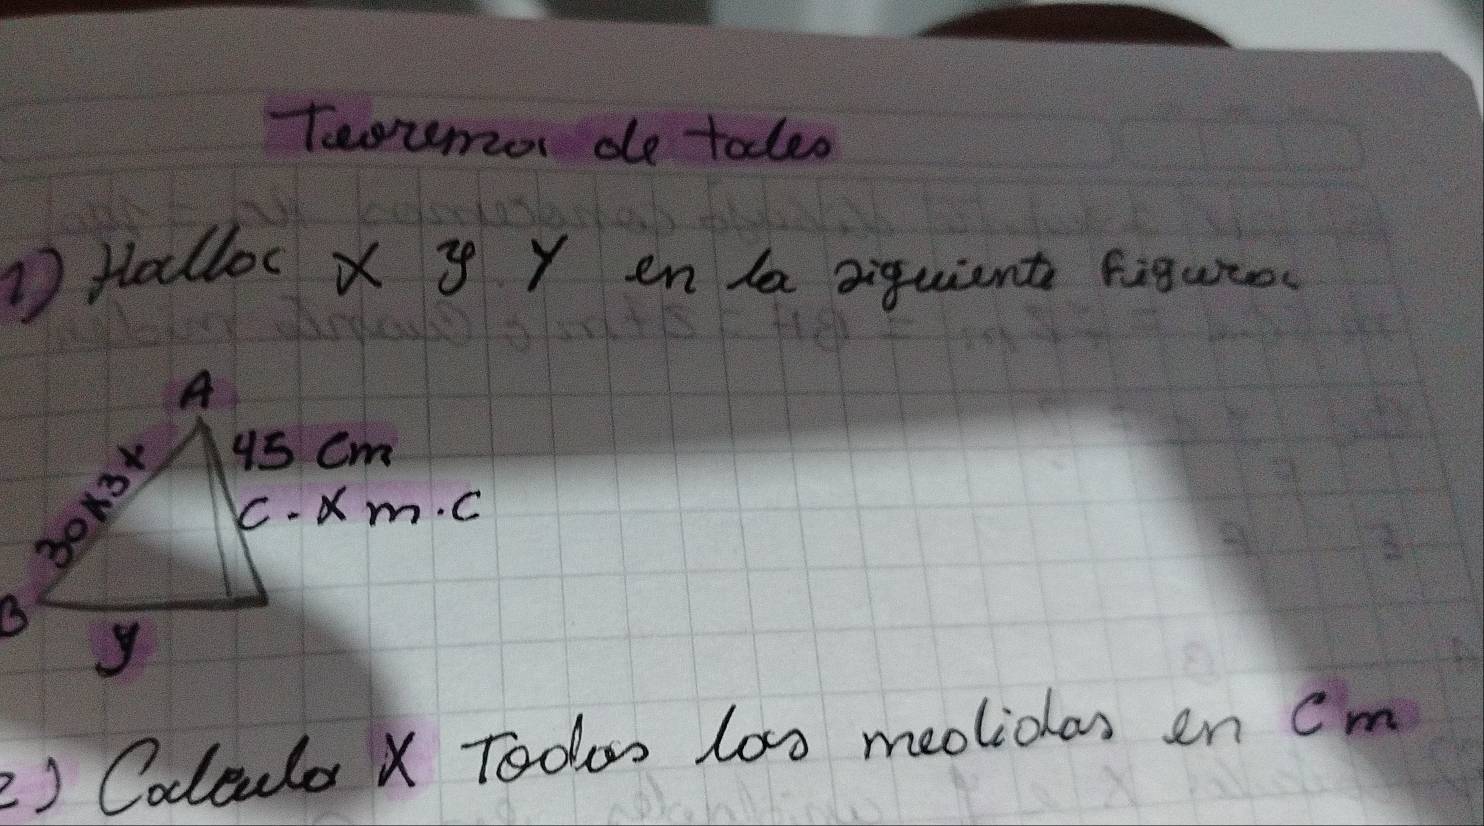 Teorema de tales
1) Hallar x y Y en la siguiente figura
A
45 cm
30x3x
C.x m.c
B
y
2) Calcula x Todas las medidas en cm